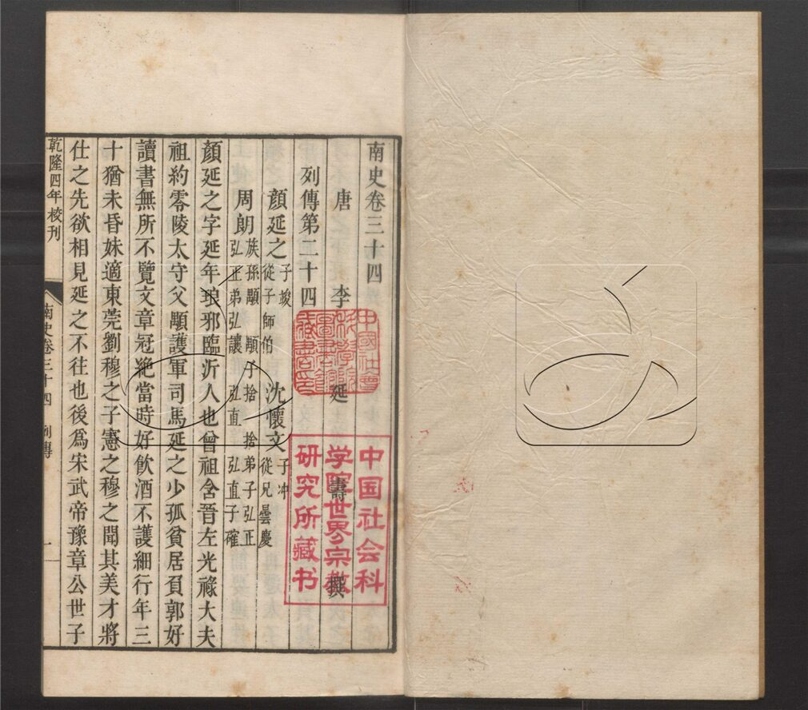 南史卷三十四
唐 李 延 壽 撰
列傳第二十四
顏延之 子竣 從子師伯 沈懷文 子冲 從兄曇慶
周朗 族孫顒 顒子捨 捨弟子弘正 弘正弟弘讓 弘直 弘直子確
顏延之字延年琅邪臨沂人也曾祖含晉左光祿大夫
祖約零陵太守父顒護軍司馬延之少孤貧居負郭好
讀書無所不覽文章冠絶當時好飲酒不護細行年三
十猶未昏妹適東莞劉穆之子憲之穆之聞其美才將
仕之先欲相見延之不往也後爲宋武帝豫章公世子
乾隆四年校刊
南史卷三十四 列傳 一
中國社會
科學院
圖書館
藏書印
中国社会科
学院世界宗教
研究所藏书